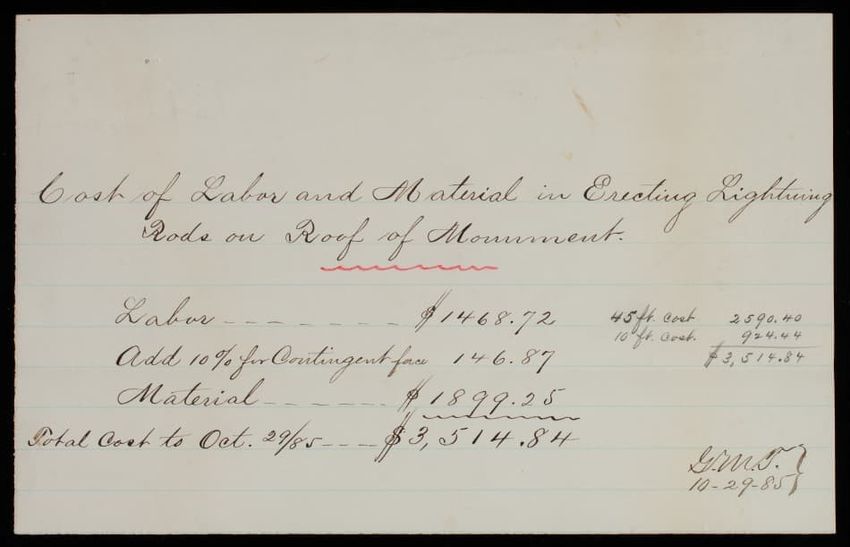 Cost of Labor and Material in Erecting Lightning
Rods on Roof of Monument.
Labor -------- $1468.72
Add 10% for Contingent 146.87
Material ------ $ 1899.25
Total Cost to Oct. 29/85 --- $3,514.84
45 ft. cost 2590.40
10 ft. cost. 924.44
$3,514.84
10-29-85